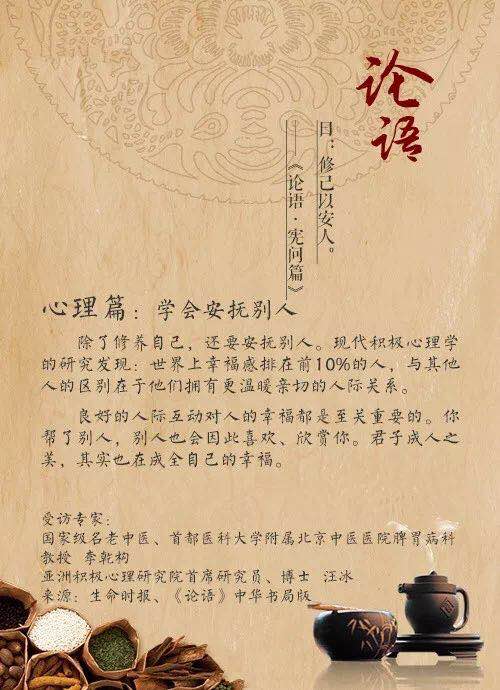 论语
曰：修己以安人。
——《论语·宪问篇》
心理篇：学会安抚别人
除了修养自己，还要安抚别人。现代积极心理学
的研究发现：世界上幸福感排在前10%的人，与其他
人的区别在于他们拥有更温暖亲切的人际关系。
良好的人际互动对人的幸福都是至关重要的。你
帮了别人，别人也会因此喜欢、欣赏你。君子成人之
美，其实也在成全自己的幸福。
受访专家：
国家级名老中医、首都医科大学附属北京中医医院脾胃病科
教授 李乾构
亚洲积极心理研究院首席研究员、博士 汪冰
来源：生命时报、《论语》中华书局版